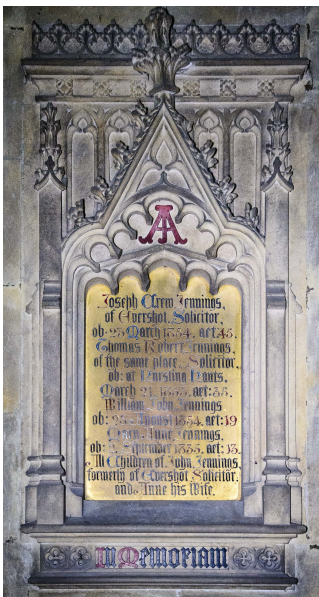 A
Joseph Crew Jennings,
of Evershot, Solicitor,
ob: 23 March 1854, aet: 45.
Thomas Robert Jennings,
of the same place, Solicitor,
ob: at Hants,
March 21,
William Jennings
ob: 1854, aet: 19
Jennings,
ob: aet: 13.
All Children of John Jennings,
formerly of Evershot Solicitor,
and Anne his Wife.
In Memoriam